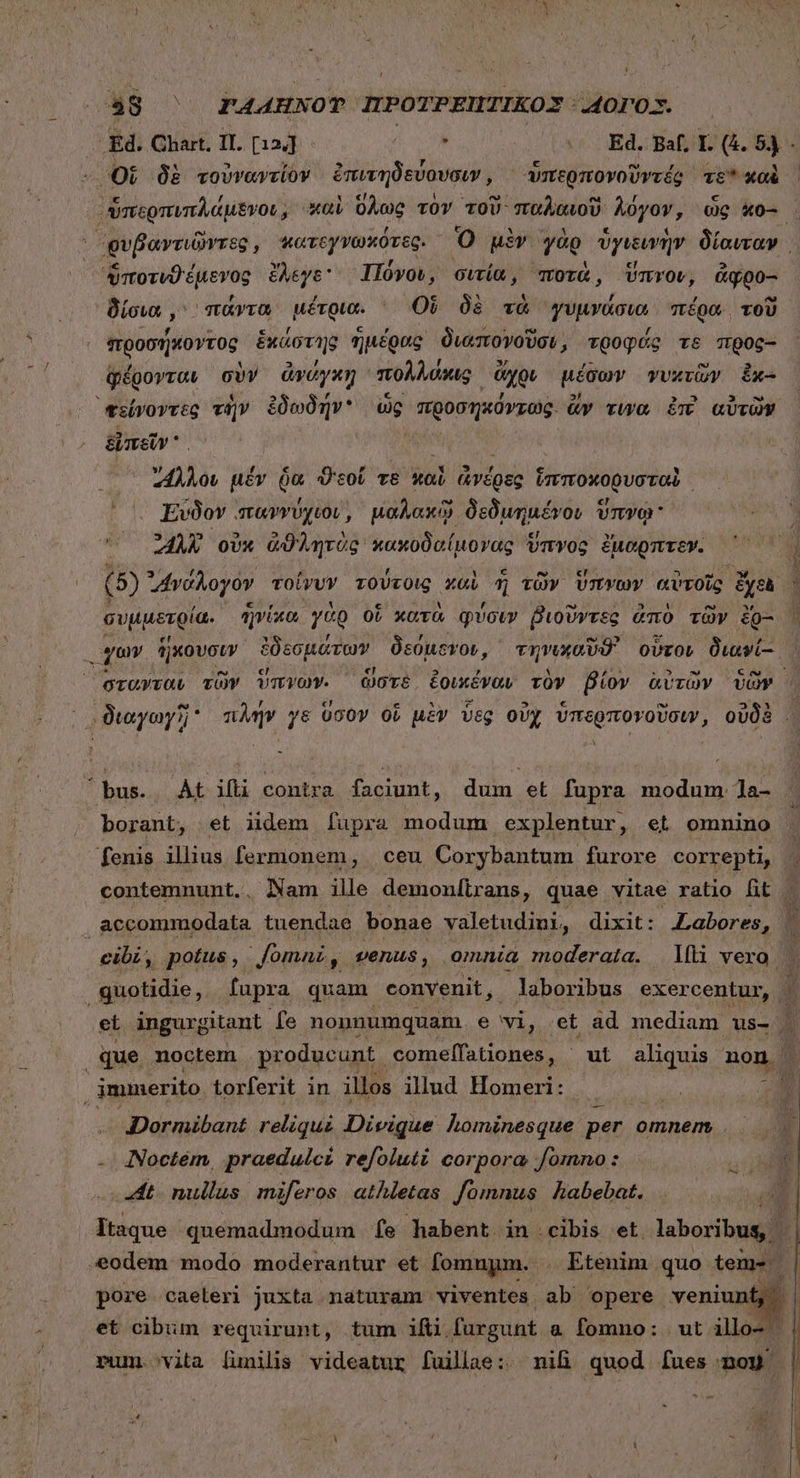 28 ΓΑΛΗΝΟΥ ΠΡΟΤΡΕΠΤΙΚΟΣ ΛΟΓΟΣ.
Ed. Chart. II. [12.] Ed. Baf. I. (4. 5.)
Οἱ δὲ τοὐναντίον ἐπιτηδεύουσιν, ὑπερπονοῦντές τε καὶ
ὑπερπιπλάμενοι, καὶ ὅλως τὸν τοῦ παλαιοῦ λόγον, ὡς κο-
ρυβαντιῶντες, κατεγνωκότες. Ὁ μὲν γὰρ ὑγιεινὴν δίαιταν
ὑποτιθέμενος ἔλεγε· Πόνοι, σιτία, ποτὰ, ὕπνοι, ἀφρο-
δίσια, πάντα μέτρια. Οἱ δὲ τὰ γυμνάσια πέρα τοῦ
προσήκοντος ἑκάστης ἡμέρας διαπονοῦσι, τροφάς τε προς-
φέρονται σὺν ἀνάγκῃ πολλάκις ἄχρι μέσων νυκτῶν ἐκ-
τείνοντες τὴν ἐδωδήν· ὡς προσηκόντως ἄν τινα ἐπ᾽ αὐτῶν
εἰπεῖν·
Ἄλλοι μέν ῥα θεοί τε καὶ ἀνέρες ἱπποκορυσταὶ
Εὗδον παννύχιοι, μαλακῷ δεδμημένοι ὕπνῳ·
Ἀλλ᾽ οὐκ ἀθλητὰς κακοδαίμονας ὕπνος ἔμαρπτεν.
(5) Ἀνάλογόν τοίνυν τούτοις καὶ ἡ τῶν ὕπνων αὐτοῖς ἔχει
συμμετρία. ἡνίκα γὰρ οἱ κατὰ φύσιν βιοῦντες ἀπὸ τῶν ἔρ-
γων ἥκουσιν ἐδεσμάτων δεόμενοι, τηνικαῦθ᾽ οὗτοι διανί-
στανται τῶν ὕπνων. ὥστε ἐοικέναι τὸν βίον αὐτῶν ὑῶν
διαγωγῇ· πλήν γε ὅσον οἱ μὲν ὕες οὐχ ὑπερπονοῦσιν, οὐδὲ
bus. At ifti contra faciunt, dum et fupra modum la-
borant, et iidem fupra modum explentur, et omnino
fenis illius fermonem, ceu Corybantum furore correpti,
contemnunt. Nam ille demonftrans, quae vitae ratio fit
accommodata tuendae bonae valetudini, dixit: Labores,
cibi, potus, fomni, venus, omnia moderata. Ifti vero
quotidie, fupra quam convenit, laboribus exercentur,
et ingurgitant fe nonnumquam e vi, et ad mediam us-
que noctem producunt comeffationes, ut aliquis non
immerito torferit in illos illud Homeri:
Dormibant reliqui Divique hominesque per omnem
Noctem, praedulci refoluti corpora fomno:
At nullus miferos athletas fomnus habebat.
Itaque quemadmodum fe habent in cibis et laboribus,
eodem modo moderantur et fomnum. Etenim quo tem-
pore caeteri juxta naturam viventes ab opere veniunt,
et cibum requirunt, tum ifti furgunt a fomno: ut illo-
rum vita fimilis videatur fuillae: nifi quod fues non